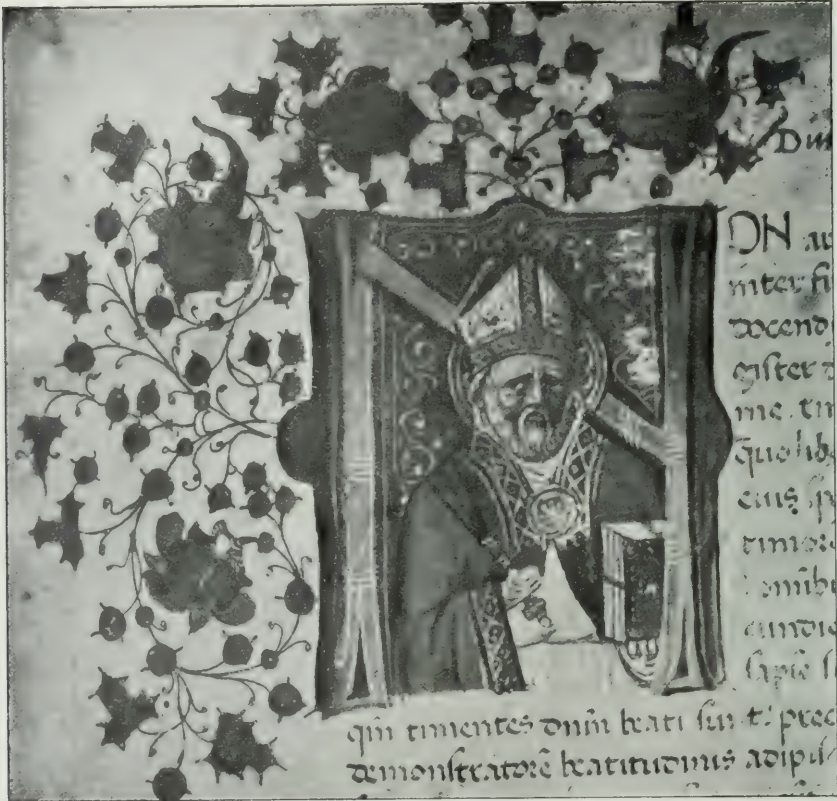 NON ar
inter fi
docend
gister d
me. tim
que lib
eius sp
timore
omib
qm̄ timentes dn̄m beati sūt. prec
demonstratorē beatitudinis adipis